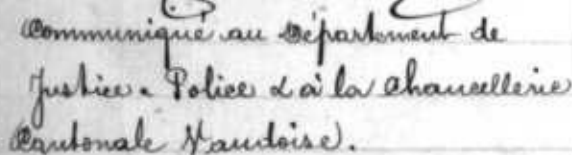 Communiqué au Département de
Justice & Police & à la Chancellerie
Cantonale Vaudoise.